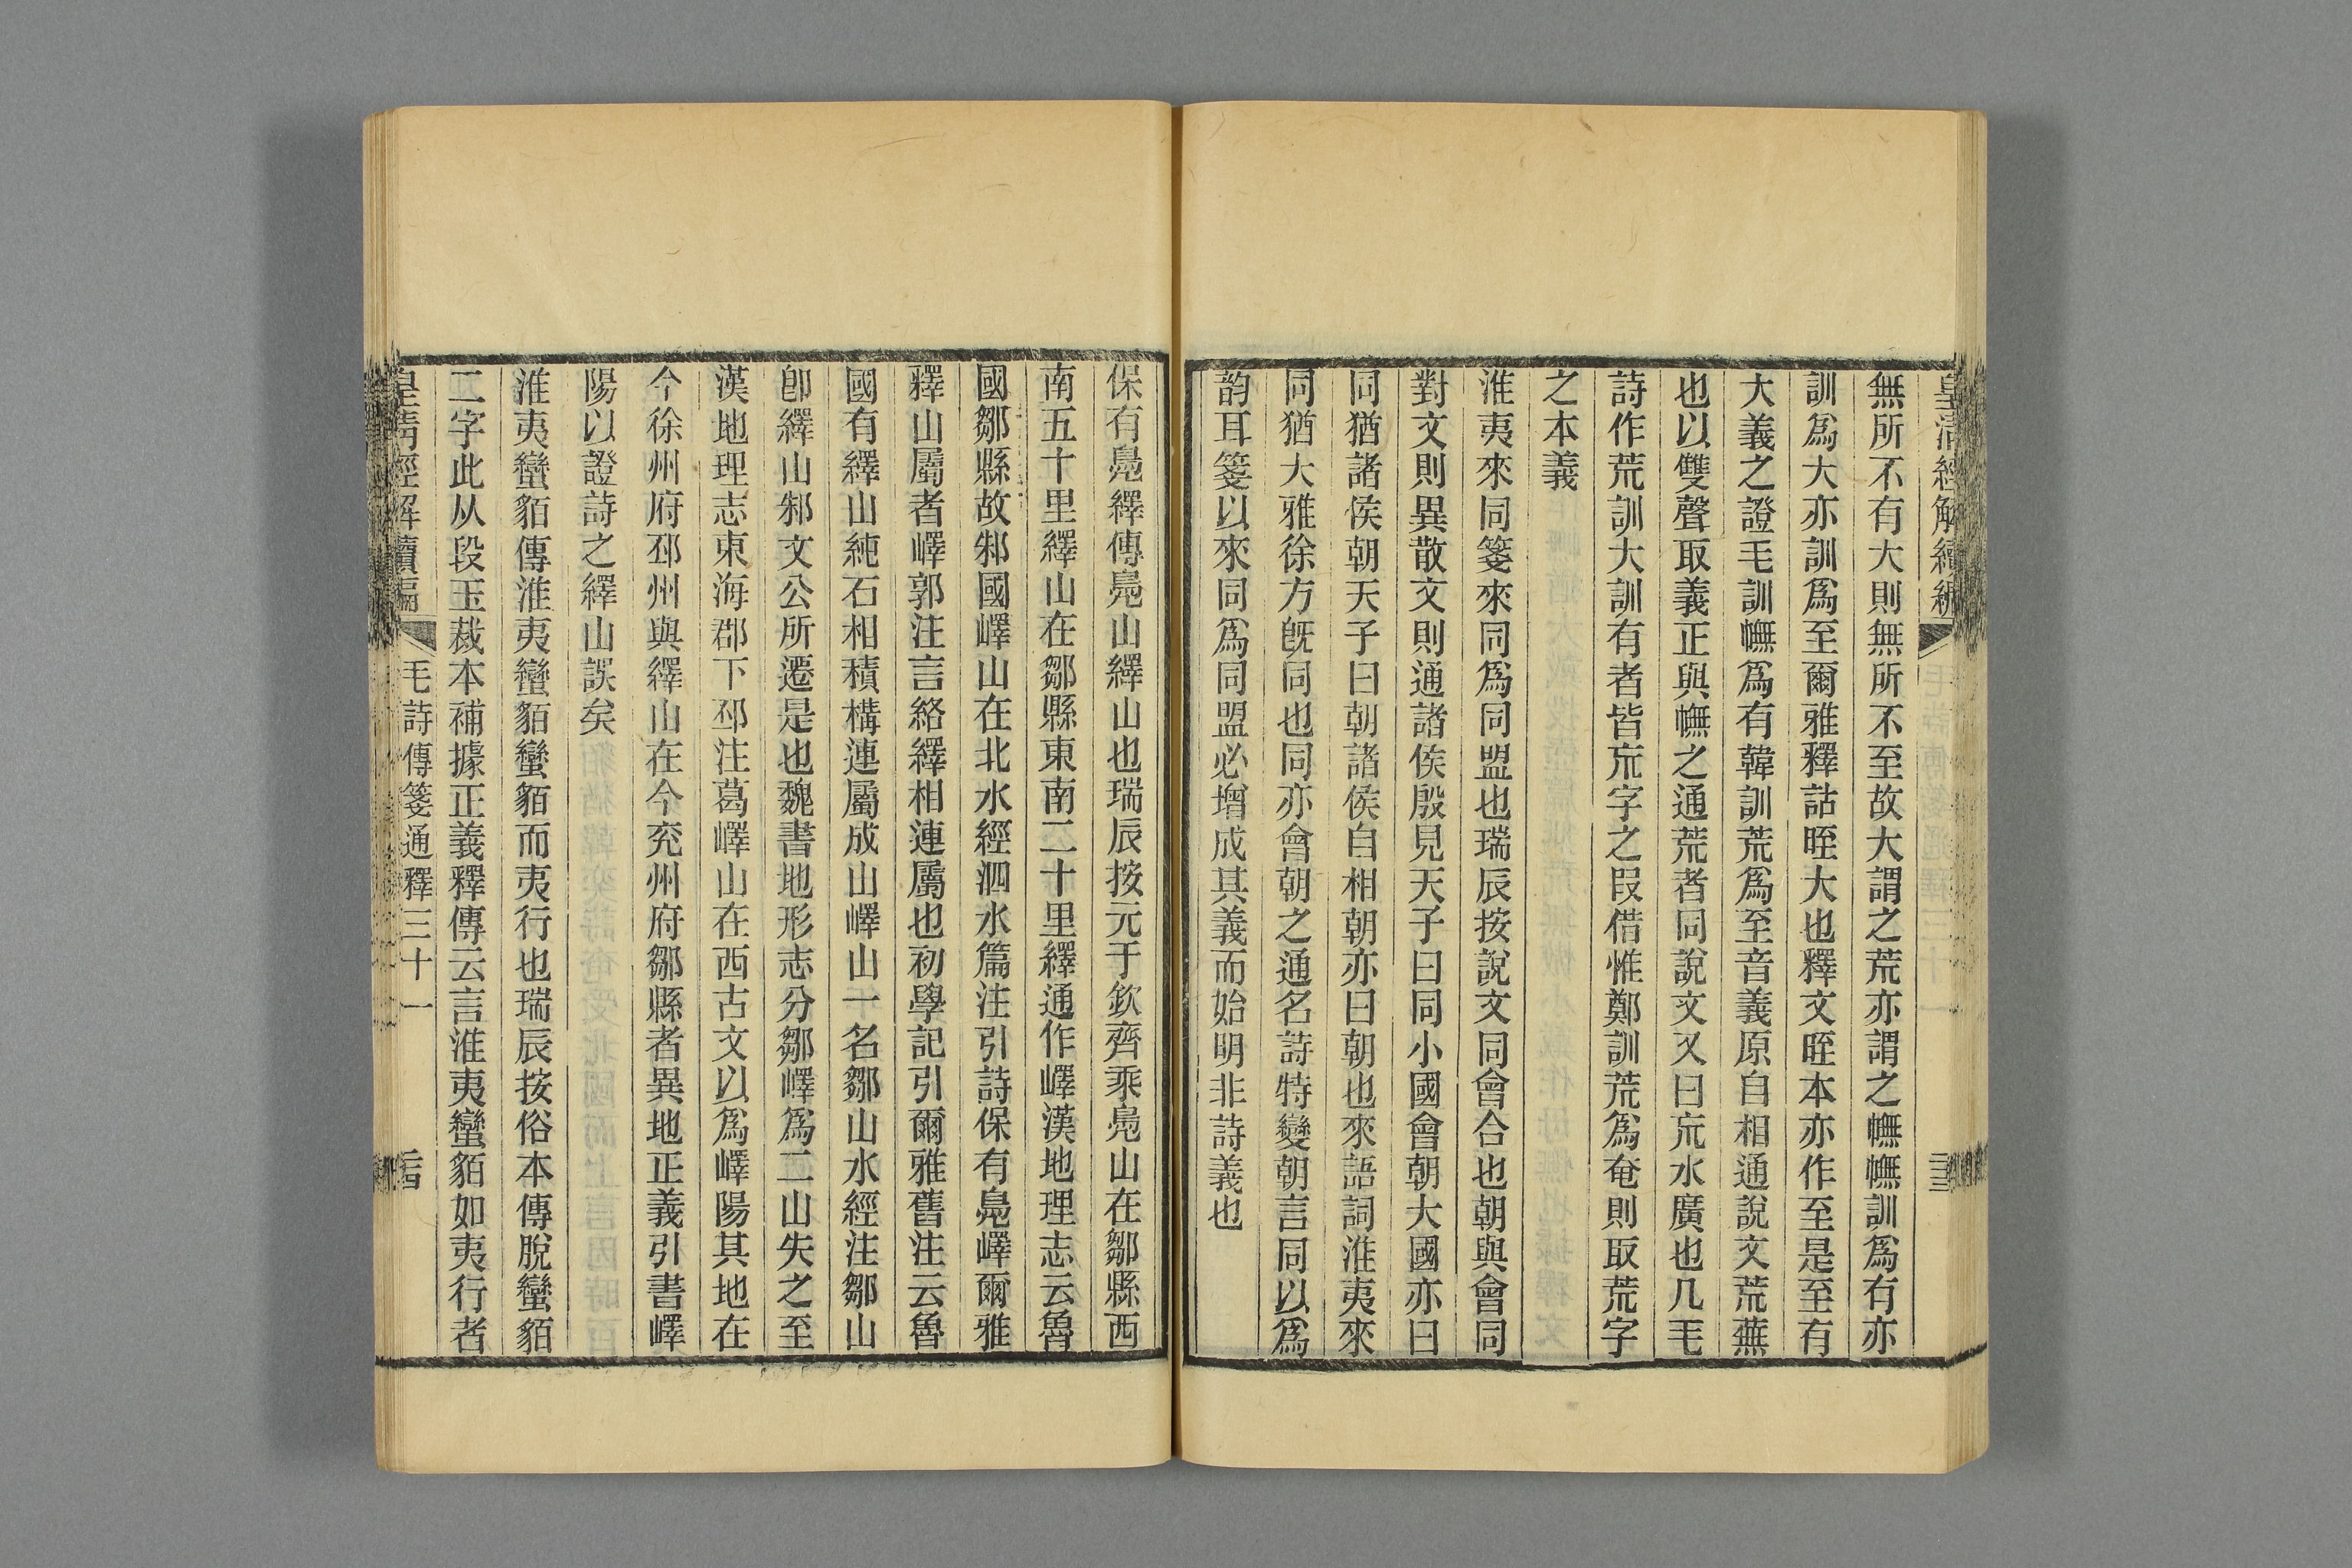 皇清經解續編
無所不有大則無所不至故大謂之荒亦謂之幠幠訓爲有亦
訓爲大亦訓爲至爾雅釋詁晊大也釋文晊本亦作至是至有
大義之證毛訓幠爲有韓訓荒爲至音義原自相通說文荒蕪
也以雙聲取義正與幠之通荒者同說文又曰巟水廣也凡毛
詩作荒訓大訓有者皆巟字之叚借惟鄭訓荒爲奄則取荒字
之本義
淮夷來同箋來同爲同盟也瑞辰按說文同會合也朝與會同
對文則異散文則通諸侯殷見天子曰同小國會朝大國亦曰
同猶諸侯朝天子曰朝諸侯自相朝亦曰朝也來語詞淮夷來
同猶大雅徐方旣同也同亦會朝之通名詩特變朝言同以爲
韵耳箋以來同爲同盟必增成其義而始明非詩義也
保有鳧繹傳鳧山繹山也瑞辰按元于欽齊乘鳧山在鄒縣西
南五十里繹山在鄒縣東南二十里繹通作嶧漢地理志云魯
國鄒縣故邾國嶧山在北水經泗水篇注引詩保有鳧嶧爾雅
釋山屬者嶧郭注言絡繹相連屬也初學記引爾雅舊注云魯
國有繹山純石相積構連屬成山嶧山一名鄒山水經注鄒山
卽繹山邾文公所遷是也魏書地形志分鄒嶧爲二山失之至
漢地理志東海郡下邳注葛嶧山在西古文以爲嶧陽其地在
今徐州府邳州與繹山在今兖州府鄒縣者異地正義引書嶧
陽以證詩之繹山誤矣
淮夷蠻貊傳淮夷蠻貊蠻貊而夷行也瑞辰按俗本傳脫蠻貊
二字此从段玉裁本補據正義釋傳云言淮夷蠻貊如夷行者
皇清經解續編 毛詩傳箋通釋三十一